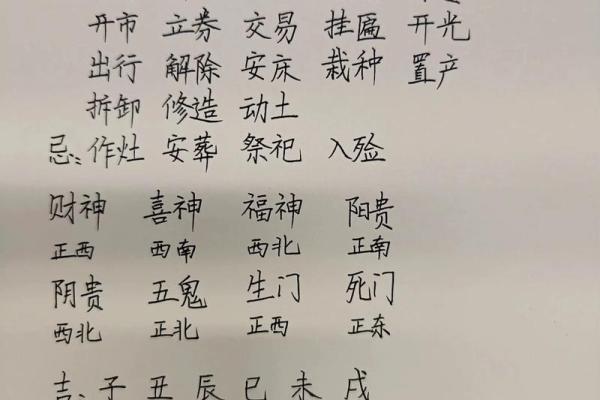 开市 立券 交易 挂匾 开光
出行 解除 安床 栽种 置产
拆卸 修造 动土
忌：作灶 安葬 祭祀 入殓
财神 喜神 福神 阳贵
正西 西南 西北 正南
阴贵 五鬼 生门 死门
西北 正北 正西 正东
吉：子 丑 辰 巳 未 戌